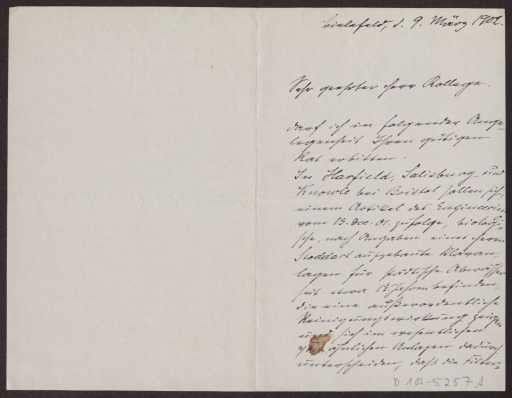 Bielefeld, d. 9. März 1902.
Sehr geehrter Herr Kollege.
Darf ich in folgender Ange-
legenheit Ihren gütigen
Rat erbitten.
In Horfield, Salisbury und
Knowle bei Bristol sollen sich
einem Artikel des Engineering
vom 13. Dec. 01. zufolge, biologi-
sche, nach Angaben eines Herrn
Stoddart ausgebaute Kläran-
lagen für städtische Abwässer
seit etwa Jahren befinden,
die eine außerordentliche
Reinigungswirkung zeigen
und sich im wesentlichen
ähnlichen Anlagen dadurch
unterscheiden, daß die Filter-
D 102-5257 A